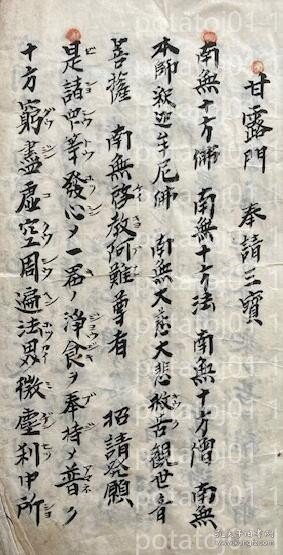 甘露門　奉請三寶
南無十方佛　南無十方法　南無十方僧　南無
本師釈迦牟尼佛　南無大慈大悲救苦觀世音
菩薩　南無啓教阿難尊者　招請發願
是諸衆等發心ノ一器ノ淨食ヲ奉持ノ普ク
十方窮盡虚空周遍法界微塵刹中所